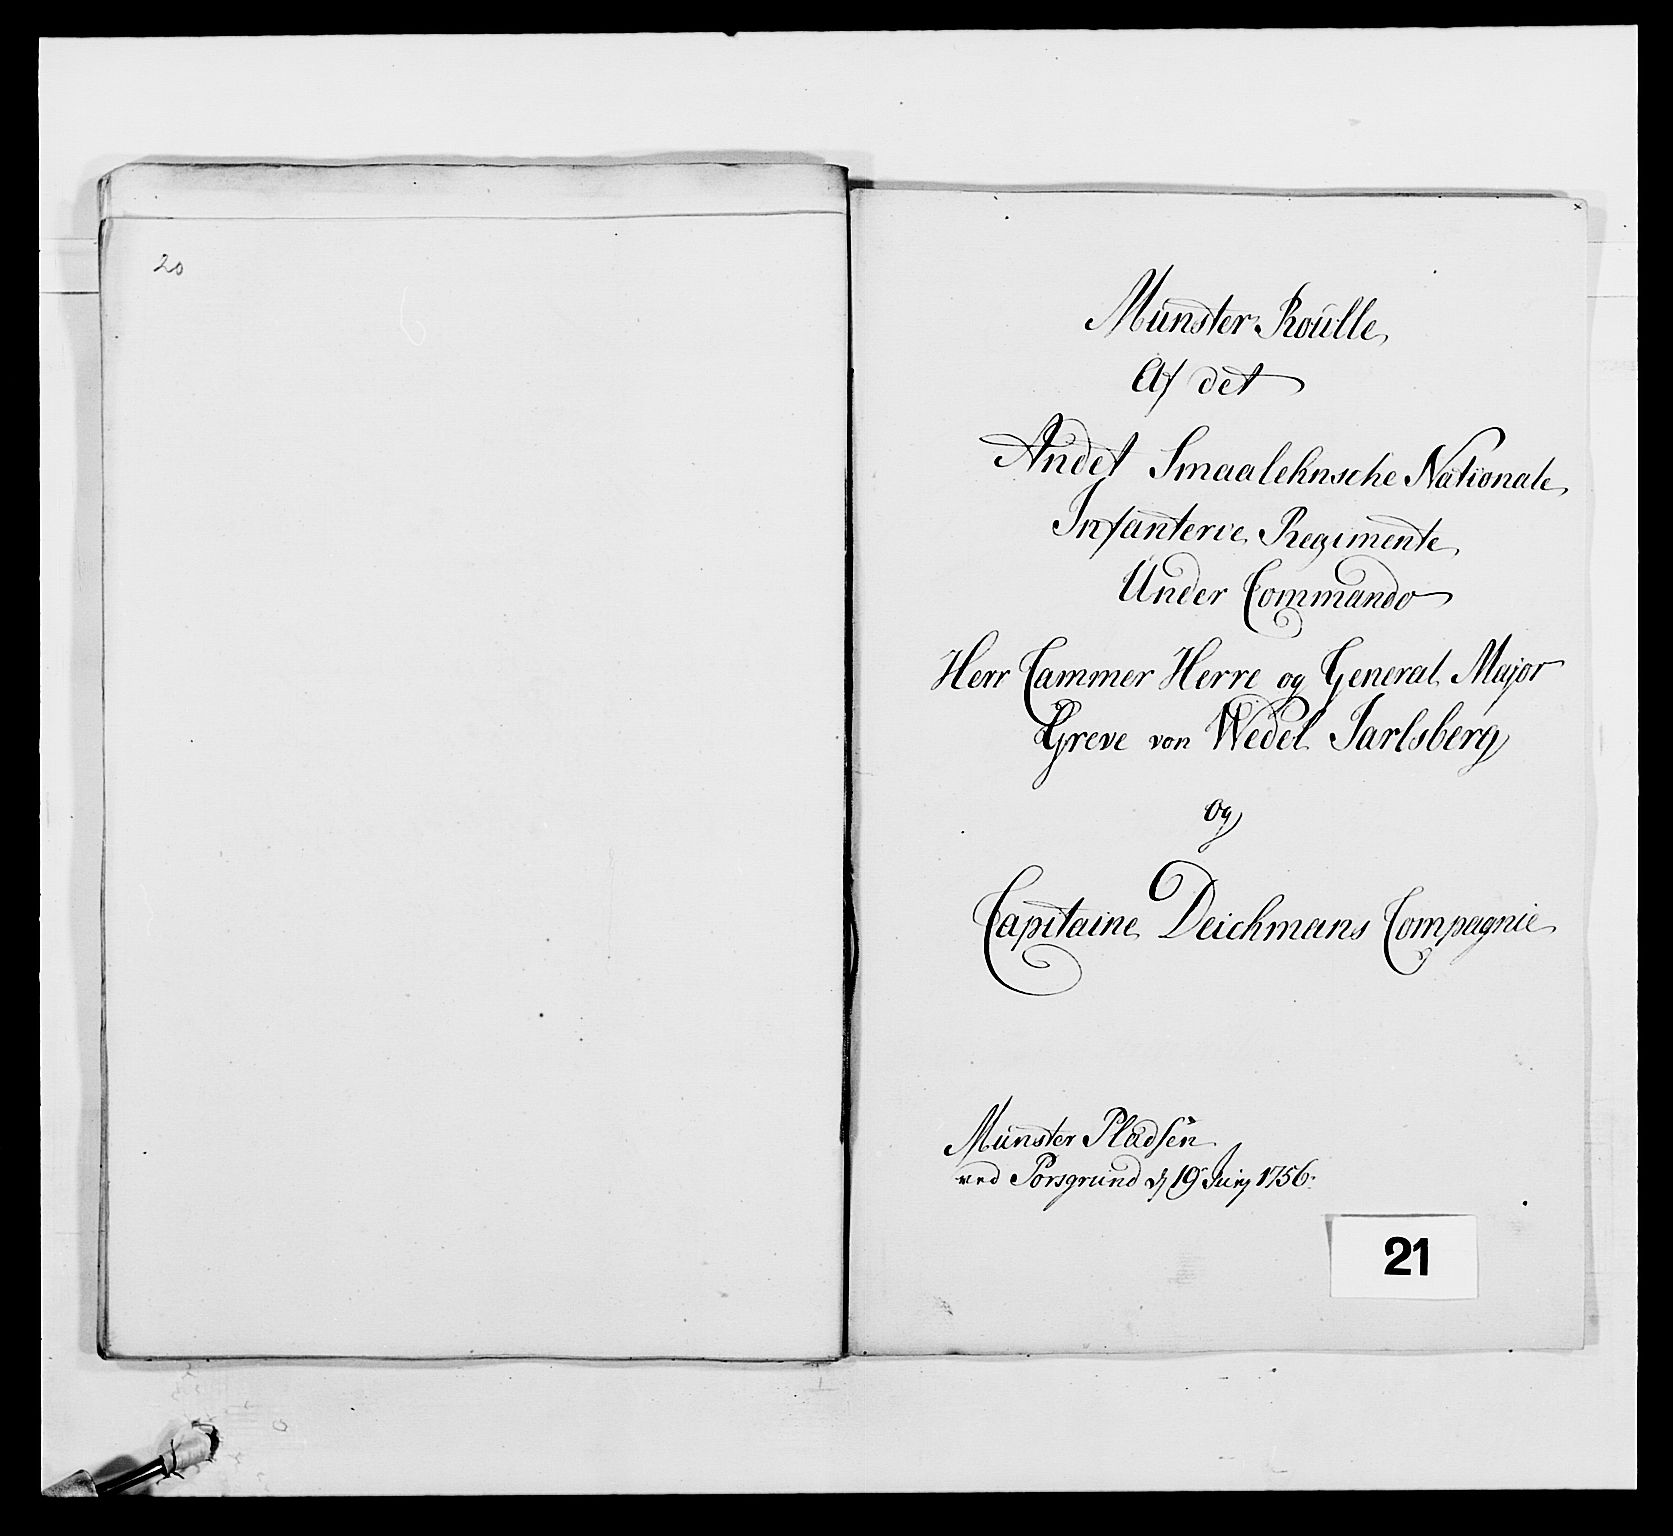 20
Münster-Roulle
Af det
Andet Smaalehnsche Nationale
Infanterie Regimente
Under Commando
Herr Cammer Herre og General Major
Greve von Wedel Jarlsberg
og
Capitaine Deichmans Compagnie
Münster Pladsen
ved Porsgrund d 19 Juny 1756.
21